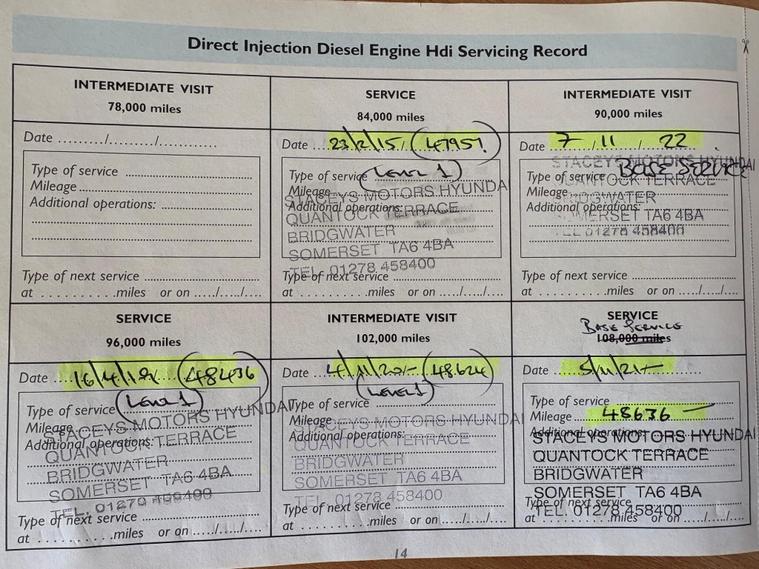 Direct Injection Diesel Engine Hdi Servicing Record
INTERMEDIATE VISIT
78,000 miles
Date ......../......../............
Type of service
Mileage
Additional operations:
Type of next service
at ..........miles or on ...../...../....
SERVICE
84,000 miles
Date 23/2/15 (47957)
Type of service (Level 1)
Mileage
Additional operations:
STACEYS MOTORS HYUNDAI
QUANTOCK TERRACE
BRIDGWATER
SOMERSET TA6 4BA
TEL. 01278 458400
Type of next service
at ..........miles or on ...../...../....
INTERMEDIATE VISIT
90,000 miles
Date 7 / 11 / 22
Type of service BASE SERVICE
Mileage
Additional operations:
STACEYS MOTORS HYUNDAI
QUANTOCK TERRACE
BRIDGWATER
SOMERSET TA6 4BA
TEL 01278 458400
Type of next service
at ..........miles or on ...../...../....
SERVICE
96,000 miles
Date 16/4/ (48436)
Type of service (Level 1)
Mileage
Additional operations:
STACEYS MOTORS HYUNDAI
QUANTOCK TERRACE
BRIDGWATER
SOMERSET TA6 4BA
TEL. 01278
Type of next service
at ..........miles or on ...../...../....
INTERMEDIATE VISIT
102,000 miles
Date 4/11/20 (48624)
Type of service (Level 1)
Mileage
Additional operations:
STACEYS MOTORS HYUNDAI
QUANTOCK TERRACE
BRIDGWATER
SOMERSET TA6 4BA
TEL. 01278 458400
Type of next service
at ..........miles or on ...../...../....
SERVICE
BASE SERVICE
108,000 miles
Date 5/11/21
Type of service
Mileage 48636
Additional operations:
STACEYS MOTORS HYUNDAI
QUANTOCK TERRACE
BRIDGWATER
SOMERSET TA6 4BA
TEL. 01278 458400
Type of next service
at ..........miles or on ...../...../....
14